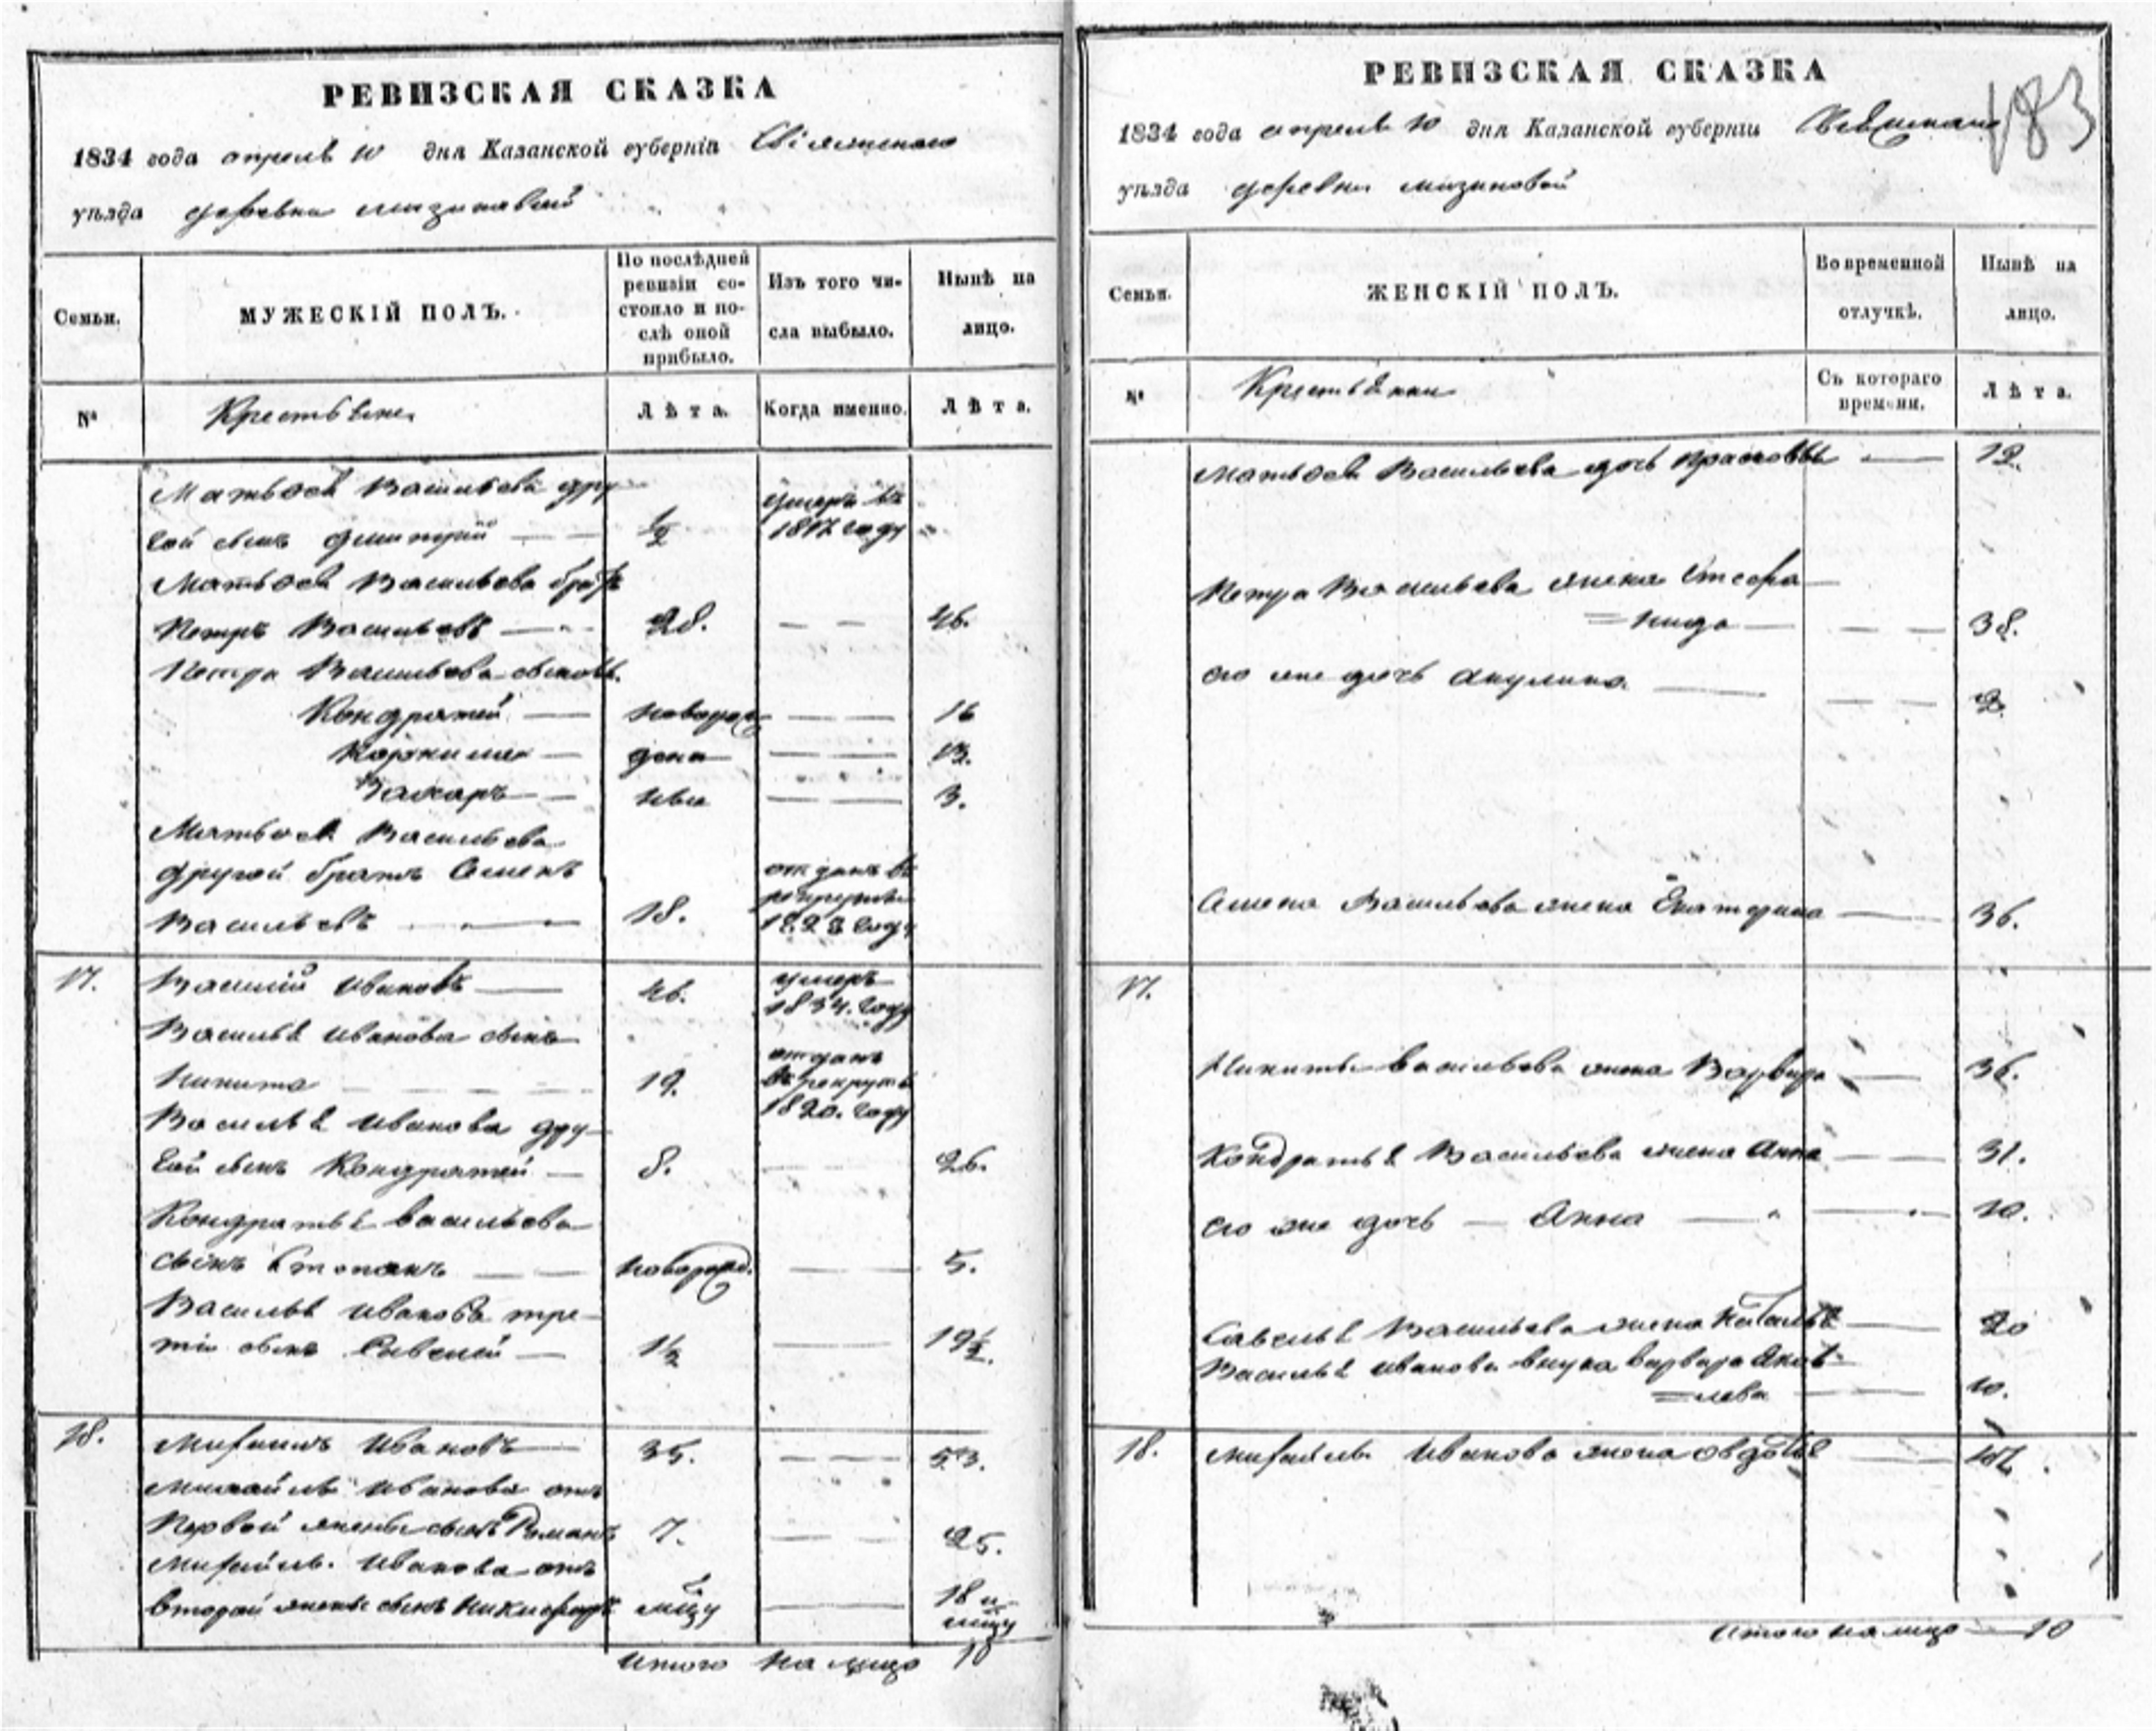 РЕВИЗСКАЯ СКАЗКА
1834 года апреля 10 дня Казанской губерніи Свіяжскаго
уѣзда деревни мизиновой
Семьи.
МУЖЕСКІЙ ПОЛЪ.
По послѣдней
ревизіи со-
стояло и по-
слѣ оной
прибыло.
Изъ того чи-
сла выбыло.
Нынѣ на
лицо.
№
Крестьяне.
Лѣта.
Когда именно.
Лѣта.
Матвѣя Васильева дру
гой сынъ дмитрий ½ умеръ въ 1817 году
Матвѣя Васильева братъ
Петръ Васильевъ 28. 46.
Петра Васильева сыновья
Кондратей новорож 16
дена 13.
Захаръ ныи 3.
Матвѣя Васильева
другой братъ Семенъ
Васильевъ 18. отданъ въ рекруты 1828 году
17. Василий Ивановъ 46. умеръ 1834. году
Василья Иванова сынъ
Никита 19. отданъ въ рекруты 1820. году
Василья Иванова дру
гой сынъ Кондратей 8. 26.
Кондратья Васильева
сынъ Степанъ новорожд. 5.
Василья Иванова тре
тій сынъ Савелий 1½ 19½.
18. Михаилъ Ивановъ 35. 53.
Михайлы Иванова отъ
Первой жены сынъ Романъ 7. 25.
Михайлы Иванова отъ
второй жены сынъ Никифоръ 18 и
Итого на лицо 10
РЕВИЗСКАЯ СКАЗКА
183
1834 года апреля 10 дня Казанской губерніи Свіяжскаго
уѣзда деревни мизиновой
Семьи.
ЖЕНСКІЙ ПОЛЪ.
Во временной
отлучкѣ.
Нынѣ на
лицо.
№
Крестьянки
Съ котораго
времени.
Лѣта.
Матвѣя Васильева дочь Прасковья 12.
Петра Васильева жена Стефа
=нида 38.
его же дочь акулина 2.
Семена Васильева жена Екатерина 36.
17.
Никиты васильева жена Варвара 36.
Кондратья Васильева жена Анна 31.
его же дочь Анна 10.
Савелья Васильева жена Наталья 20
Василья Иванова внука варвара Яков
=лева 10.
18. Михайлы Иванова жена Овдотья
Итого на лицо 10